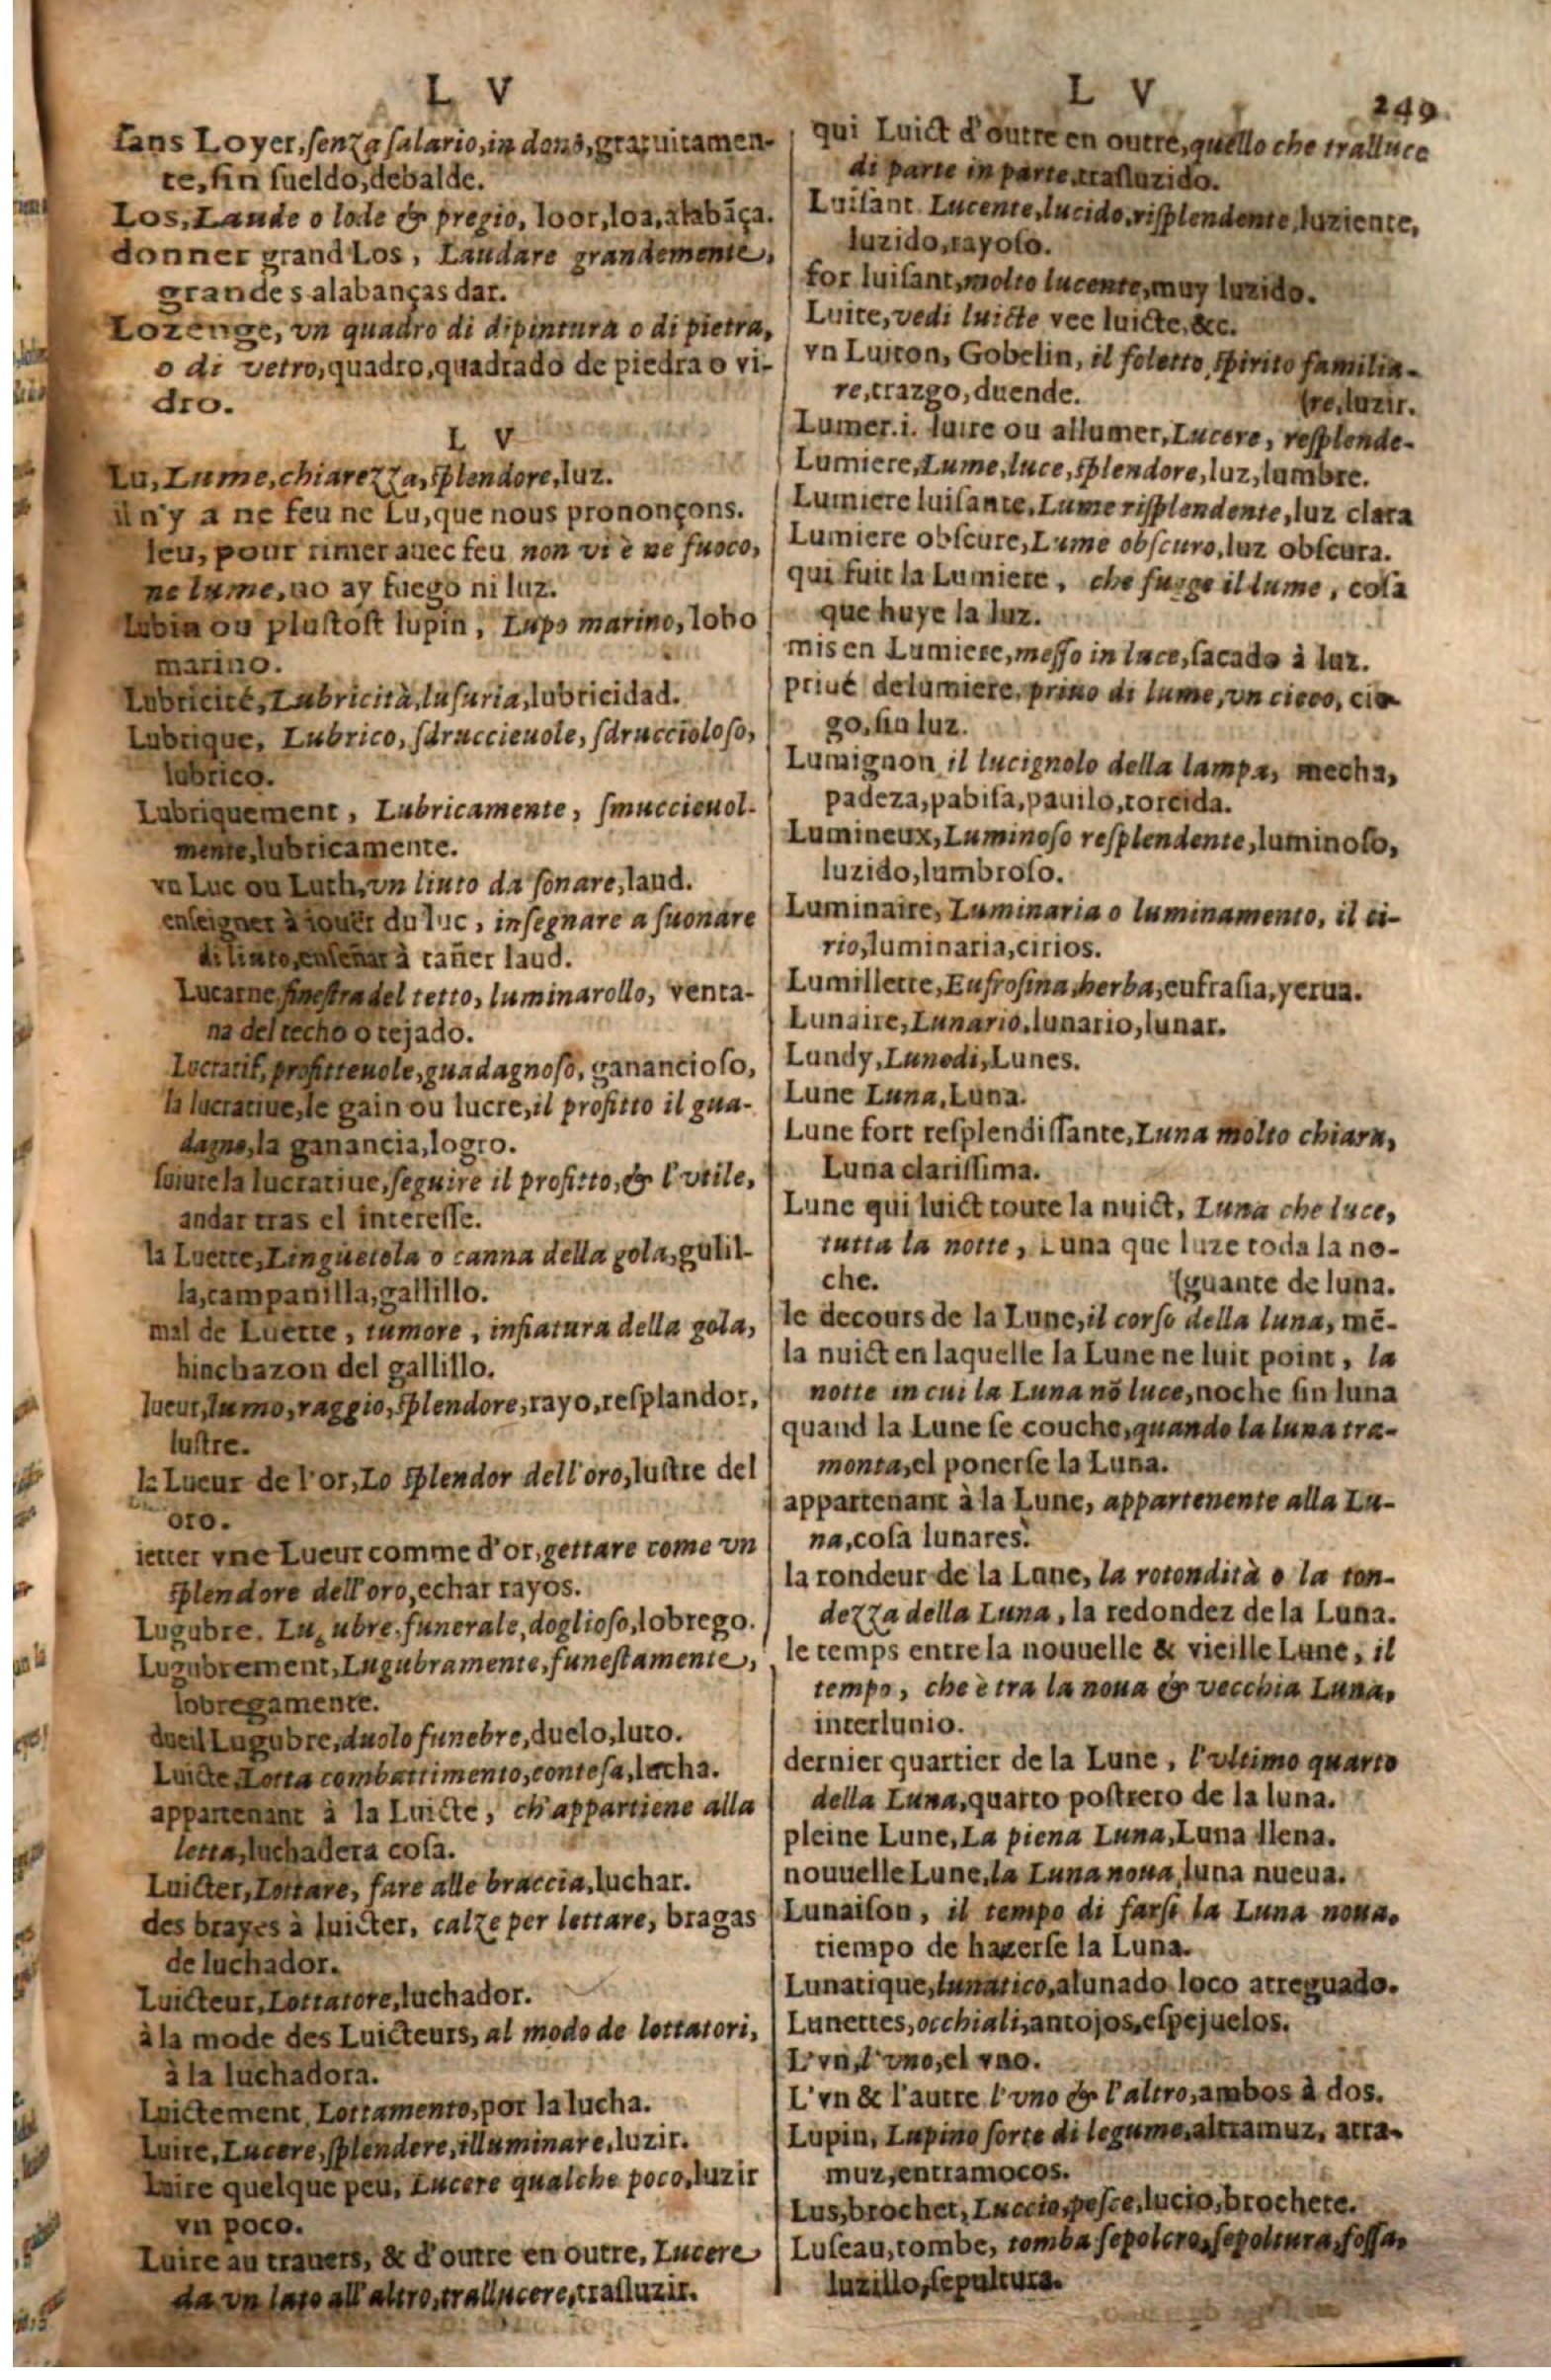 L V
sans Loyer, senza salario, in dono, gratuitamen-
te, sin sueldo, debalde.
Los, Laude o lode & pregio, loor, loa, alabãça.
donner grand Los, Laudare grandemente,
grandes alabanças dar.
Lozenge, vn quadro di dipintura o di pietra,
o di vetro, quadro, quadrado de piedra o vi-
dro.
L V
Lu, Lume, chiarezza, splendore, luz.
il n'y a ne feu ne Lu, que nous prononçons.
leu, pour rimer auec feu non vi è ne fuoco,
ne lume, no ay fuego ni luz.
Lubin ou plustost lupin, Lupo marino, lobo
marino.
Lubricité, Lubricità, lusuria, lubricidad.
Lubrique, Lubrico, sdruccieuole, sdruccioloso,
lubrico.
Lubriquement, Lubricamente, smuccieuol-
mente, lubricamente.
vn Luc ou Luth, vn liuto da sonare, laud.
enseigner à iouër du luc, insegnare a suonare
di liuto, enseñar à tañer laud.
Lucarne, finestra del tetto, luminarollo, venta-
na del techo o tejado.
Lucratif, profitteuole, guadagnoso, ganancioso,
la lucratiue, le gain ou lucre, il profitto il gua-
dagno, la ganancia, logro.
suiure la lucratiue, seguire il profitto, & l'vtile,
andar tras el interesse.
la Luette, Linguetola o canna della gola, gulil-
la, campanilla, gallillo.
mal de Luette, tumore, infiatura della gola,
hinchazon del gallillo.
lueur, lumo, raggio, splendore, rayo, resplandor,
lustre.
la Lueur de l'or, Lo splendor dell'oro, lustre del
oro.
ietter vne Lueur comme d'or, gettare come vn
splendore dell'oro, echar rayos.
Lugubre. Lugubre, funerale, doglioso, lobrego.
Lugubrement, Lugubramente, funestamente,
lobregamente.
dueil Lugubre, duolo funebre, duelo, luto.
Luicte, Lotta combattimento, contesa, lucha.
appartenant à la Luicte, ch'appartiene alla
lotta, luchadera cosa.
Luicter, Lottare, fare alle braccia, luchar.
des brayes à luicter, calze per lottare, bragas
de luchador.
Luicteur, Lottatore, luchador.
à la mode des Luicteurs, al modo de lottatori,
à la luchadora.
Luictement, Lottamento, por la lucha.
Luire, Lucere, splendere, illuminare, luzir.
Luire quelque peu, Lucere qualche poco, luzir
vn poco.
Luire au trauers, & d'outre en outre, Lucere
da vn lato all'altro, trallucere, trasluzir.
L V
249
qui Luict d'outre en outre, quello che tralluce
di parte in parte, trasluzido.
Luisant Lucente, lucido, risplendente, luziente,
luzido, rayoso.
for luisant, molto lucente, muy luzido.
Luite, vedi luicte vee luicte, &c.
vn Luiton, Gobelin, il foletto spirito familia-
re, trazgo, duende. (re, luzir.
Lumer. i. luire ou allumer, Lucere, resplende-
Lumiere, Lume, luce, splendore, luz, lumbre.
Lumiere luisante, Lume risplendente, luz clara
Lumiere obscure, Lume obscuro, luz obscura.
qui fuit la Lumiere, che fugge il lume, cosa
que huye la luz.
mis en Lumiere, messo in luce, sacado à luz.
priué de lumiere, priuo di lume, vn cieco, cie-
go, sin luz.
Lumignon il lucignolo della lampa, mecha,
padeza, pabisa, pauilo, torcida.
Lumineux, Luminoso resplendente, luminoso,
luzido, lumbroso.
Luminaire, Luminaria o luminamento, il ci-
rio, luminaria, cirios.
Lumillette, Eufrosina, herba, eufrasia, yerua.
Lunaire, Lunario, lunario, lunar.
Lundy, Lunedi, Lunes.
Lune Luna, Luna.
Lune fort resplendissante, Luna molto chiara,
Luna clarissima.
Lune qui luict toute la nuict, Luna che luce,
tutta la notte, Luna que luze toda la no-
che. (guante de luna.
le decours de la Lune, il corso della luna, mẽ-
la nuict en laquelle la Lune ne luit point, la
notte in cui la Luna nõ luce, noche sin luna
quand la Lune se couche, quando la luna tra-
monta, el ponerse la Luna.
appartenant à la Lune, appartenente alla Lu-
na, cosa lunares.
la rondeur de la Lune, la rotondità o la ton-
dezza della Luna, la redondez de la Luna.
le temps entre la nouuelle & vieille Lune, il
tempo, che è tra la noua & vecchia Luna,
interlunio.
dernier quartier de la Lune, l'vltimo quarto
della Luna, quarto postrero de la luna.
pleine Lune, La piena Luna, Luna llena.
nouuelle Lune, la Luna noua, luna nueua.
Lunaison, il tempo di farsi la Luna noua,
tiempo de hazerse la Luna.
Lunatique, lunatico, alunado loco atreguado.
Lunettes, occhiali, antojos, espejuelos.
L'vn, l'vno, el vno.
L'vn & l'autre l'vno & l'altro, ambos à dos.
Lupin, Lupino sorte di legume, altramuz, atra-
muz, entramocos.
Lus, brochet, Luccio, pesce, lucio, brochete.
Luseau, tombe, tomba sepolcro, sepoltura, fossa,
luzillo, sepultura.